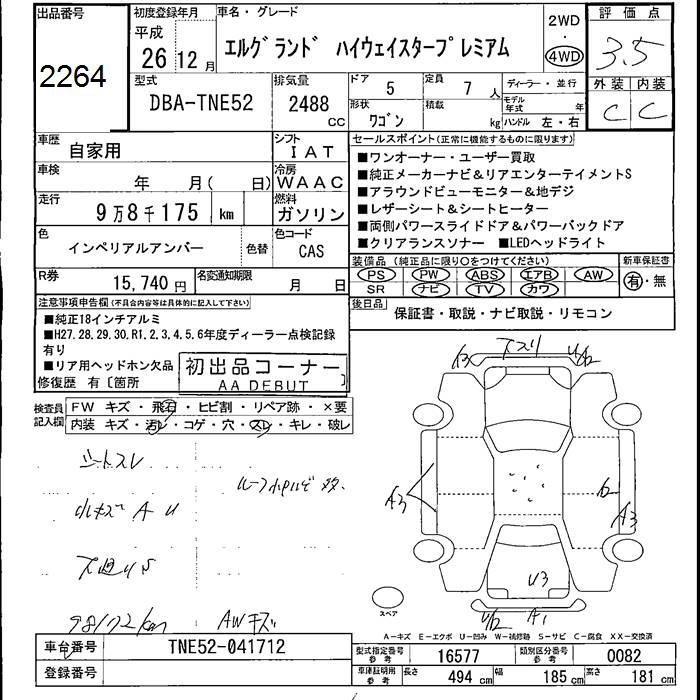 出品番号
2264
初度登録年月
平成
26 12 月
車名・グレード
エルグランド ハイウェイスタープレミアム
2WD
・
4WD
評価点
3.5
外装 内装
C C
型式
DBA-TNE52
排気量
2488 CC
ドア 5
定員 7 人
形状 ワゴン
積載 kg
ディーラー・並行
モデル年式 年
ハンドル 左・右
車歴 自家用
シフト IAT
車検 年 月( 日)
冷房 WAAC
走行 9万8千175 km
燃料 ガソリン
色 インペリアルアンバー
色替
色コード CAS
R券 15,740円
名変通知期限 月 日
セールスポイント(正常に機能するものに限ります)
■ワンオーナー・ユーザー買取
■純正メーカーナビ&リアエンターテイメントS
■アラウンドビューモニター&地デジ
■レザーシート&シートヒーター
■両側パワースライドドア&パワーバックドア
■クリアランスソナー ■LEDヘッドライト
装備品(純正品に限り○をつけてください)
PS PW ABS エアB AW
SR ナビ TV カワ
新車保証書
有・無
後日品 保証書・取説・ナビ取説・リモコン
注意事項申告欄(不具合内容等は具体的に記入して下さい)
■純正18インチアルミ
■H27.28.29.30.R1.2.3.4.5.6年度ディーラー点検記録
有り
■リア用ヘッドホン欠品
修復歴 有〔箇所
初出品コーナー
AA DEBUT
検査員記入欄
FW キズ・飛石・ヒビ割・リペア跡・×要
内装 キズ・汚レ・コゲ・穴・スレ・キレ・破レ
シートスレ
小キズ A U
下廻りS
98172km
AWキズ
A3
スリ
U2
A3
A3
U3
U2
A1
スペア
A-キズ E-エクボ U-凹み W-補修跡 S-サビ C-腐食 XX-交換済
車台番号 TNE52-041712
登録番号
型式指定番号 参考 16577
類別区分番号 参考 0082
車庫証明用 参考 長さ 494 cm 幅 185 cm 高さ 181 cm